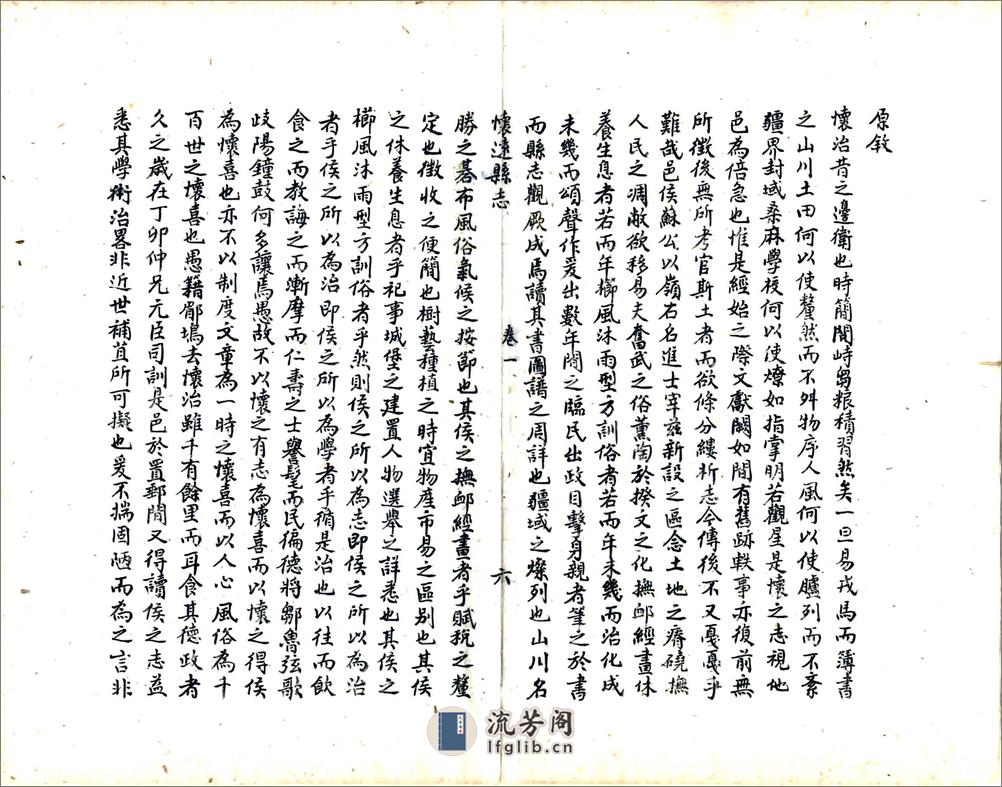 原敘
懷治昔之邊衛也時簡閱峙芻粮積習然矣一旦易戎馬而簿書
之山川土田何以使釐然而不舛物序人風何以使臚列而不紊
疆界封域桑麻學校何以使燎如指掌明若觀星是懷之志視他
邑為倍急也惟是經始之際文獻闕如間有舊跡軼事亦復前無
所徵後無所考官斯土者而欲條分縷析志今傳後不又戛戛乎
難哉邑侯蘇公以嶺右名進士宰茲新設之區念土地之瘠磽撫
人民之凋敝欲移易夫奮武之俗薰陶於揆文之化撫卹經畫休
養生息者若而年櫛風沐雨型方訓俗者若而年未幾而治化成
未幾而頌聲作爰出數年閱之臨民出政目擊身親者筆之於書
而縣志觀厥成焉讀其書圖譜之周詳也疆域之燦列也山川名
懷遠縣志
卷一
六
勝之碁布風俗氣候之按節也其侯之撫卹經畫者乎賦稅之釐
定也徵收之便簡也樹藝種植之時宜物產市易之區別也其侯
之休養生息者乎祀事城堡之建置人物選舉之詳悉也其侯之
櫛風沐雨型方訓俗者乎然則侯之所以為志即侯之所以為治
者乎侯之所以為治即侯之所以為學者乎循是治也以往而飲
食之而教誨之而漸摩而仁壽之士譽髦而民徧德將鄒魯弦歌
歧陽鐘鼓何多讓焉愚故不以懷之有志為懷喜而以懷之得侯
為懷喜也亦不以制度文章為一時之懷喜而以人心風俗為千
百世之懷喜也愚籍郿塢去懷治雖千有餘里而耳食其德政者
久之歲在丁卯仲兄元臣司訓是邑於置郵間又得讀侯之志益
悉其學術治畧非近世補苴所可擬也爰不揣固陋而為之言非
流芳阁
lfglib.cn